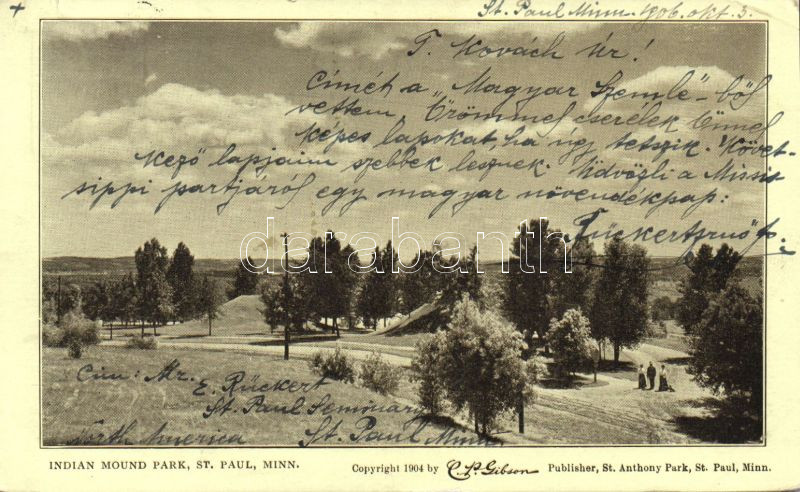 St. Paul Minn. 1906. okt. 3.
T. Kovách Úr!
Címét a „Magyar Szemlé"-ből
vettem. Örömmel cserélek Önnel
képes lapokat, ha úgy tetszik. Követ-
kező lapjaim szebbek lesznek. Üdvözli a Missis-
sippi partjáról egy magyar növendékpap:
darabanth
Cím: Mr. E. Rückert
St. Paul Seminary
North America St. Paul Minn
INDIAN MOUND PARK, ST. PAUL, MINN. Copyright 1904 by C. P. Gibson Publisher, St. Anthony Park, St. Paul, Minn.